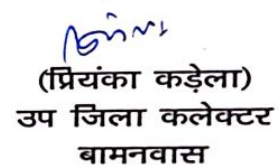 (प्रियंका कड़ेला)
उप जिला कलेक्टर
बामनवास